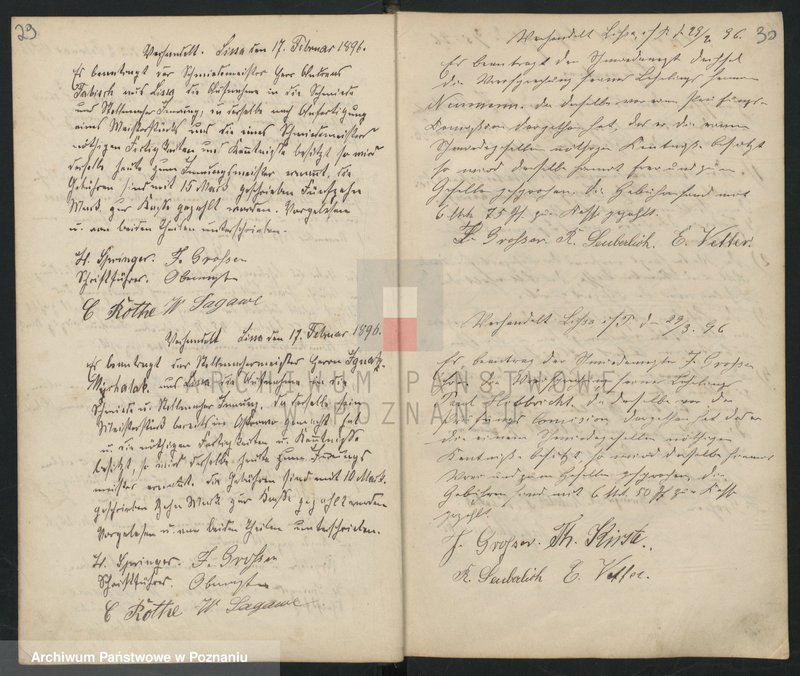 29
Verhandelt. Lissa den 17. Februar 1896.
Es beantragt der Schmiedemeister Herr Andreas
aus Lissa die Aufnahme in die Schmiede
und Stellmacher Innung, da derselbe nach Anfertigung
eines Meisterstücks und die eines Schmiedemeister
nöthigen Fertigkeiten und Kenntnisse besitzt so wird
derselbe heute zum Innungsmeister ernannt, die
Gebühren sind mit 15 Mark geschrieben Fünfzehn
Mark zur Kasse gezahlt worden. Vorgelesen
u. von beiden Theilen unterschrieben.
H. Springer. F. Grosser
Schriftführer. Obermeister
C Rothe W Sagawe
Verhandelt Lissa den 17. Februar 1896.
Es beantragt der Stellmachermeister Herrn Ignatz
aus Lissa die Aufnahme in die
Schmiede u. Stellmacher Innung. da derselbe sein
Meisterstück bereits in gemacht hat
u. die nöthigen Fertigkeiten u. Kenntnisse
besitzt, so wird derselbe heute zum Innungs
meister ernannt. Die Gebühren sind mit 10 Mark
geschrieben Zehn Mark zur Kasse gezahlt worden
Vorgelesen u. von beiden Theilen unterschrieben.
H. Springer. F. Grosser
Schriftführer. Obermeister
C Rothe W Sagawe
30
Verhandelt Lissa i/P. d 29/2. 96.
Es beantragt der
die Freisprechung seines Lehrlings Herman
Neumann. da derselbe vor der Prüfungs-
Comission dargethan hat, das er die einem
Schmiedegesellen nöthigen Kentniße besitzt
so wird derselbe hiermit frei und zum
Gesellen gesprochen. die Gebühren sind mit
6 Mk 75 Pf zur Kasse gezahlt.
F. Grosser. R. Seuberlich. E. Vetter.
Verhandelt Lissa i/P. d 29/3. 96
Es beantrag der Schmiedemeister F. Grosser
die Freisprechung seines Lehrlings
Paul da derselbe vor der
Prüfungs Comision dargethan hat das er
die einem Schmiedegesellen nöthigen
Kentniße besitzt, so wird derselbe hiermit
frei und zum Gesellen gesprochen die
Gebühren sind mit 6 Mk. 50 Pf zur Kasse
gezahlt
F. Grosser. Th. Kirste.
R. Seuberlich E. Vetter.
ARCHIWUM PAŃSTWOWE
W POZNANIU
Archiwum Państwowe w Poznaniu